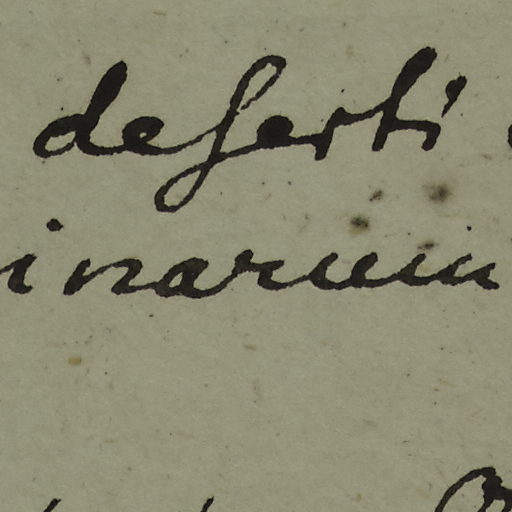 deserti
inarum